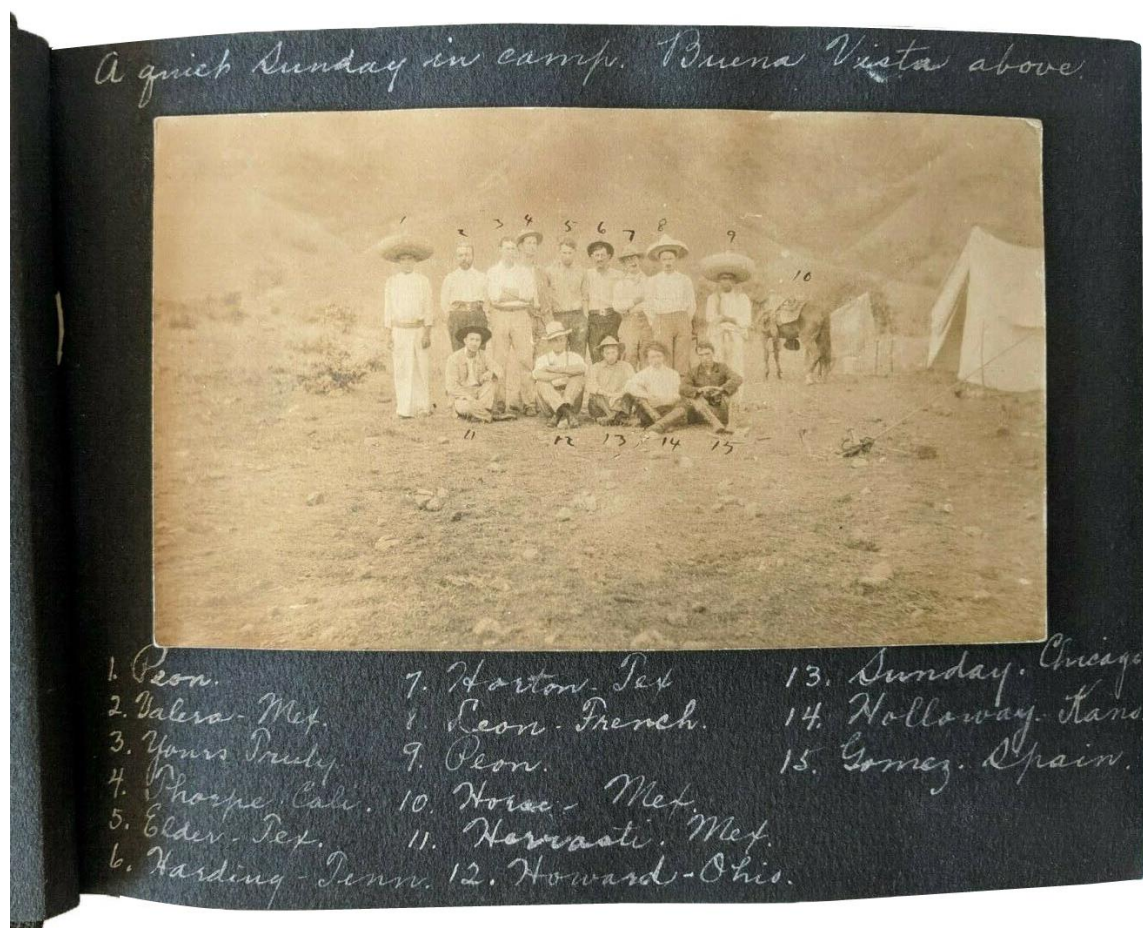 A quiet Sunday in camp. Buena Vista above.
1 2 3 4 5 6 7 8 9
10
11 12 13 14 15
1. Peon.
2. Valera - Mex.
3. Yours Truly
4. Thorpe, Cali.
5. Elder - Tex.
6. Harding - Tenn.
7. Horton - Tex
8 Leon - French.
9. Peon.
10. Horse - Mex.
11. Mex.
12. Howard - Ohio.
13. Sunday. Chicago
14. Holloway. Kans
15. Gomez. Spain.